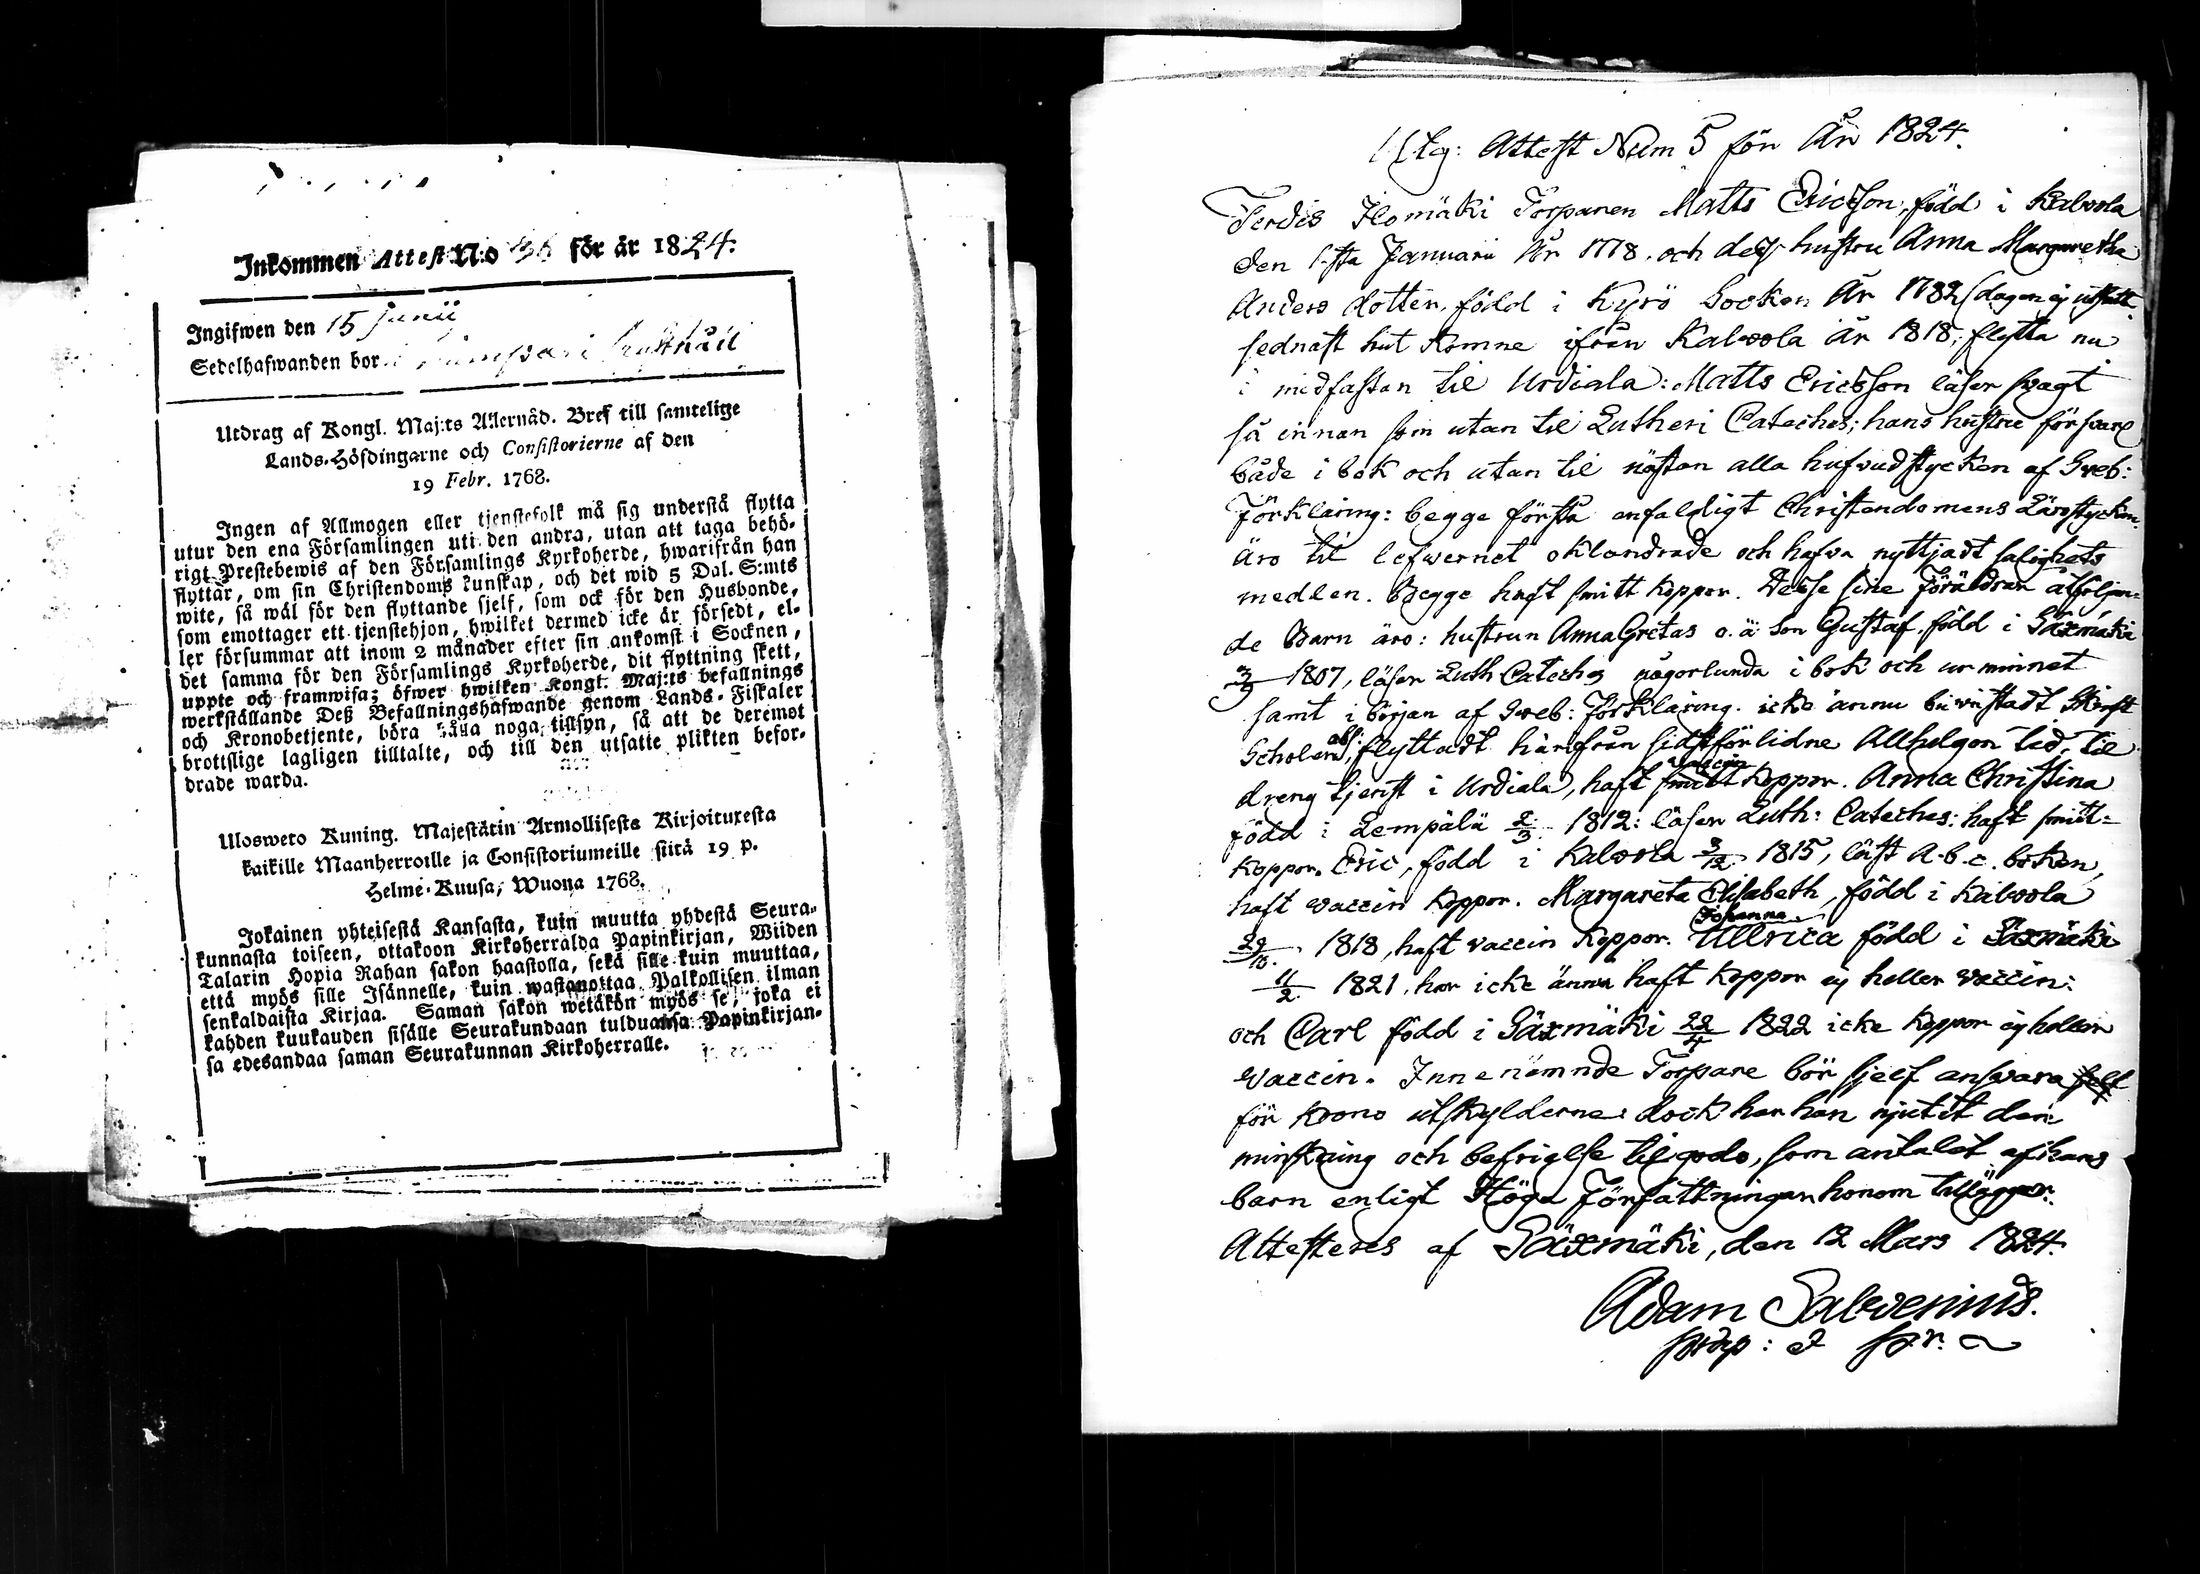 Inkommen Attest N:o för år 1824:
Ingifwen den 15 Junii
Sedelhafwanden bor
Utdrag af Kongl. Maj:ts Allernåd. Bref till samtelige
Lands-Höfdingarne och Consistorierne af den
19 Febr. 1768.
Ingen af Allmogen eller tjenstefolk må sig understå flytta
utur den ena Församlingen uti den andra, utan att taga behö-
rigt Prestebewis af den Församlings Kyrkoherde, hwarifrån han
flyttar, om sin Christendoms kunskap, och det wid 5 Dal. S:mts
wite, så wäl för den flyttande sjelf, som ock för den Husbonde,
som emottager ett tjenstehjon, hwilket dermed icke är försedt, el-
ler försummar att inom 2 månader efter sin ankomst i Socknen,
det samma för den Församlings Kyrkoherde, dit flyttning skett,
uppte och framwisa; öfwer hwilken Kongl. Maj:ts befallnings
werkställande Deß Befallningshafwande genom Lands-Fiskaler
och Kronobetjente, böra hålla noga tillsyn, så att de deremot
brottslige lagligen tilltalte, och till den utsatte plikten befor-
drade warda.
Ulosweto Kuning. Majestätin Armollisesta Kirjoituxesta
kaikille Maanherroille ja Consistoriumeille siitä 19 p.
Helme-Kuusa, Wuona 1768.
Jokainen yhteisestä Kansasta, kuin muutta yhdestä Seura-
kunnasta toiseen, ottakoon Kirkoherralda Papinkirjan, Wiiden
Talarin Hopia Rahan sakon haastolla, sekä sille kuin muuttaa,
että myös sille Isännelle, kuin wastanottaa Palkollisen ilman
senkaldaista Kirjaa. Saman sakon wetäkön myös se, joka ei
kahden kuukauden sisälle Seurakundaan tulduansa Papinkirjan-
sa edesandaa saman Seurakunnan Kirkoherralle.
Utg: Attest Num 5 för År 1824.
Ferdis Ilomäki Torparen Matts Ericsson, född i Kalvola
den 1sta Januarii År 1778. och dess hustru Anna Margaretha
Anders dotter, född i Kyrö Socken År 1782 (dagen ej utsatt.
sednast hit komne ifrån Kalvola år 1818, flytta nu
i midfastan til Urdiala: Matts Ericsson läser svagt
så innan som utan til Lutheri Cateches; hans hustru försvarl
både i bok och utan til nästan alla hufvudstycken af Sveb:
Förklaring: begge förstå enfaldigt Christendomens Lärostycken
äro til lefwernet oklandrade och hafva nyttjadt salighets
medlen. Begge haft smitt koppor. Desse sine Föräldrar åtföljan-
de Barn äro: hustrun Anna Gretas o. ä: Son Gustaf född i Säxmäki
3/9 1807, läser Luth Cateches någorlunda i bok och ur minnet
samt i början af Sveb: Förklaring. icke ännu biwistadt Skrift
Scholen, flyttadt härifrån sidstförlidne Allhelgon tid, til
dreng tjenst i Urdiala, haft smitt vaccin koppor. Anna Christina
född i Lempälä 2/3 1812: läser Luth: Cateches: haft smitt-
koppor. Eric, född i Kalvola 3/12 1815, läst A-b-c. boken,
haft vaccin koppor. Margareta Elisabeth, född i Kalvola
29/10. 1818, haft vaccin koppor. Johanna Ullrica född i Säxmäki
11/2 1821. har icke ännu haft koppor ej heller vaccin:
och Carl född i Säxmäki 22/4 1822 icke koppor ej heller
vaccin. Innenämnde Torpare bör sjelf ansvara sjelf
för krono utskylderne: dock har han njutit den
minskning och befrielse til godo, som antalet af hans
barn enligt Höga Författningar honom tillägger:
Attesteres af Säxmäki, den 12 Mars 1824.
Adam Salvenius.